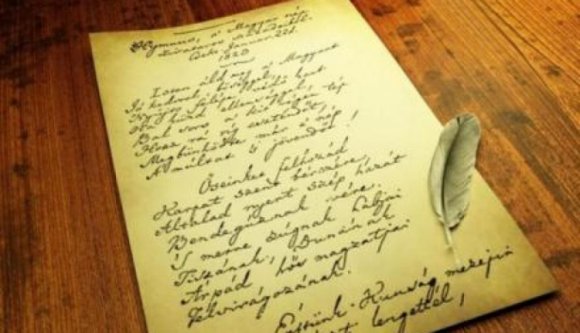 Hymnus, a' Magyar nép
zivataros századaiból.
Cseke, Januar. 22d.
1823
Isten áldd meg a' Magyart
Jó kedvvel, bőséggel,
Nyújts feléje védő kart
Ha küzd ellenséggel;
Bal sors a' kit régen tép
Hozz rá víg esztendőt,
Megbűnhődte már e' nép
A' múltat 's jövendőt!
Őseinket felhozád
Kárpát szent bérczére,
Általad nyert szép hazát
Bendegúznak vére,
'S merre zúgnak habjai
Tiszának, Dunának
Árpád hős magzatjai
Felvirágozának.
Értünk Kunság mezein
lengettél,